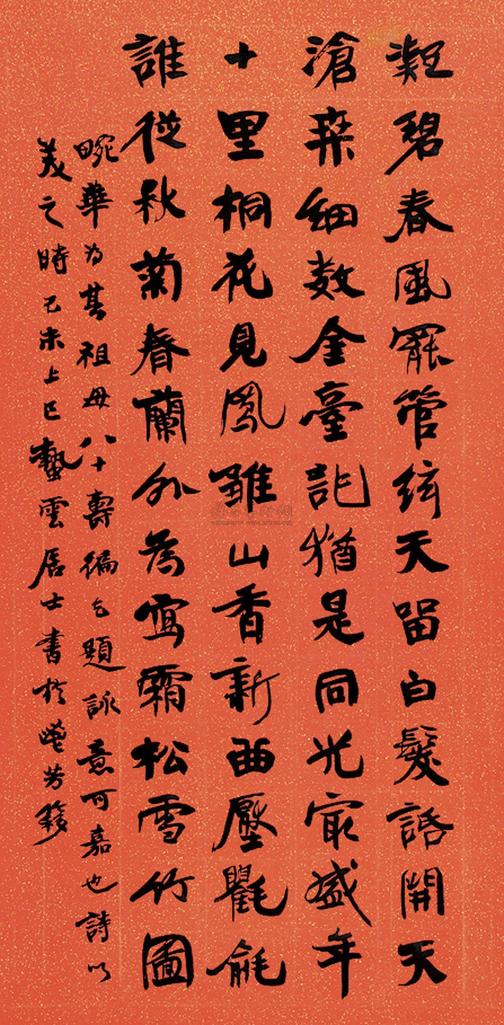 凝碧春風罷管絃天留白髮話開天
滄桑細数金臺記猶是同光㝡盛年
十里桐花見鳳雛山香新曲壓氍毹
誰從秋菊春蘭外為寫霜松雪竹圖
畹華為其祖母八十壽徧乞題詠意可嘉也詩以
美之時己未上巳蟄雲居士書於芳簃